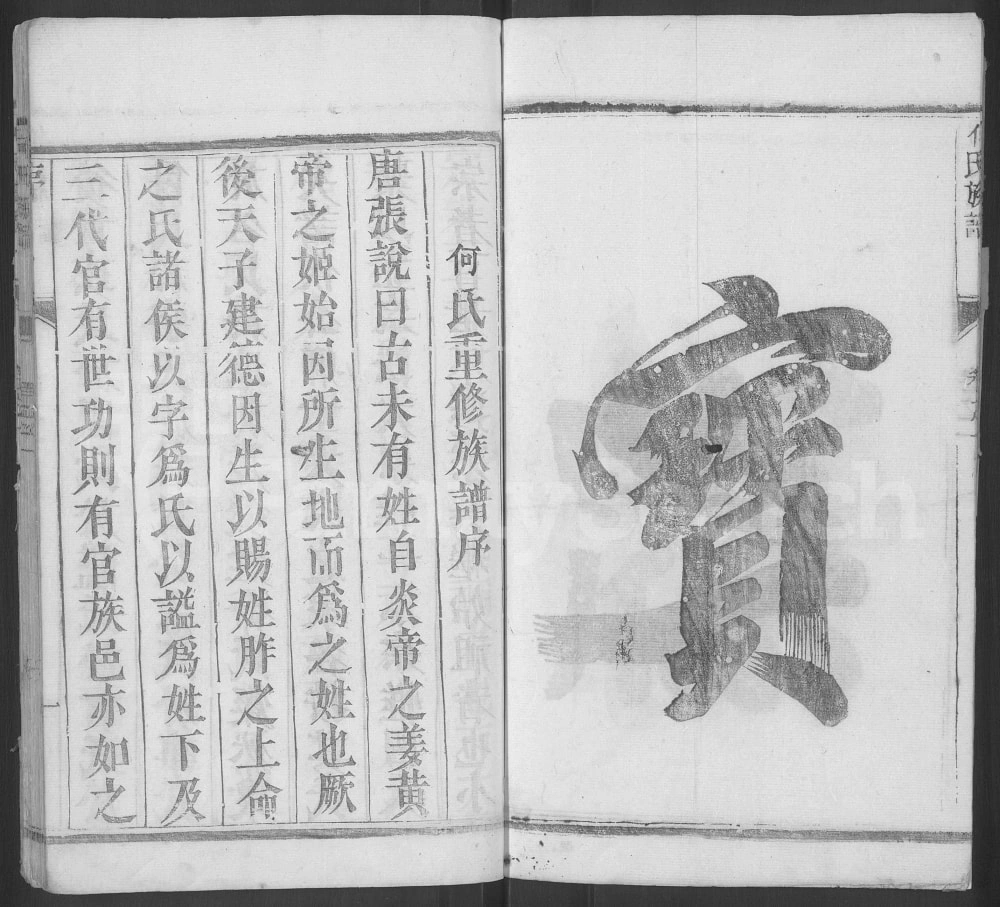 何氏族譜
寶
何氏重修族譜序
唐張說曰古未有姓自炎帝之姜黃
帝之姬始因所生地而爲之姓也厥
後天子建德因生以賜姓胙之土命
之氏諸侯以字爲氏以謚爲姓下及
三代官有世功則有官族邑亦如之
序